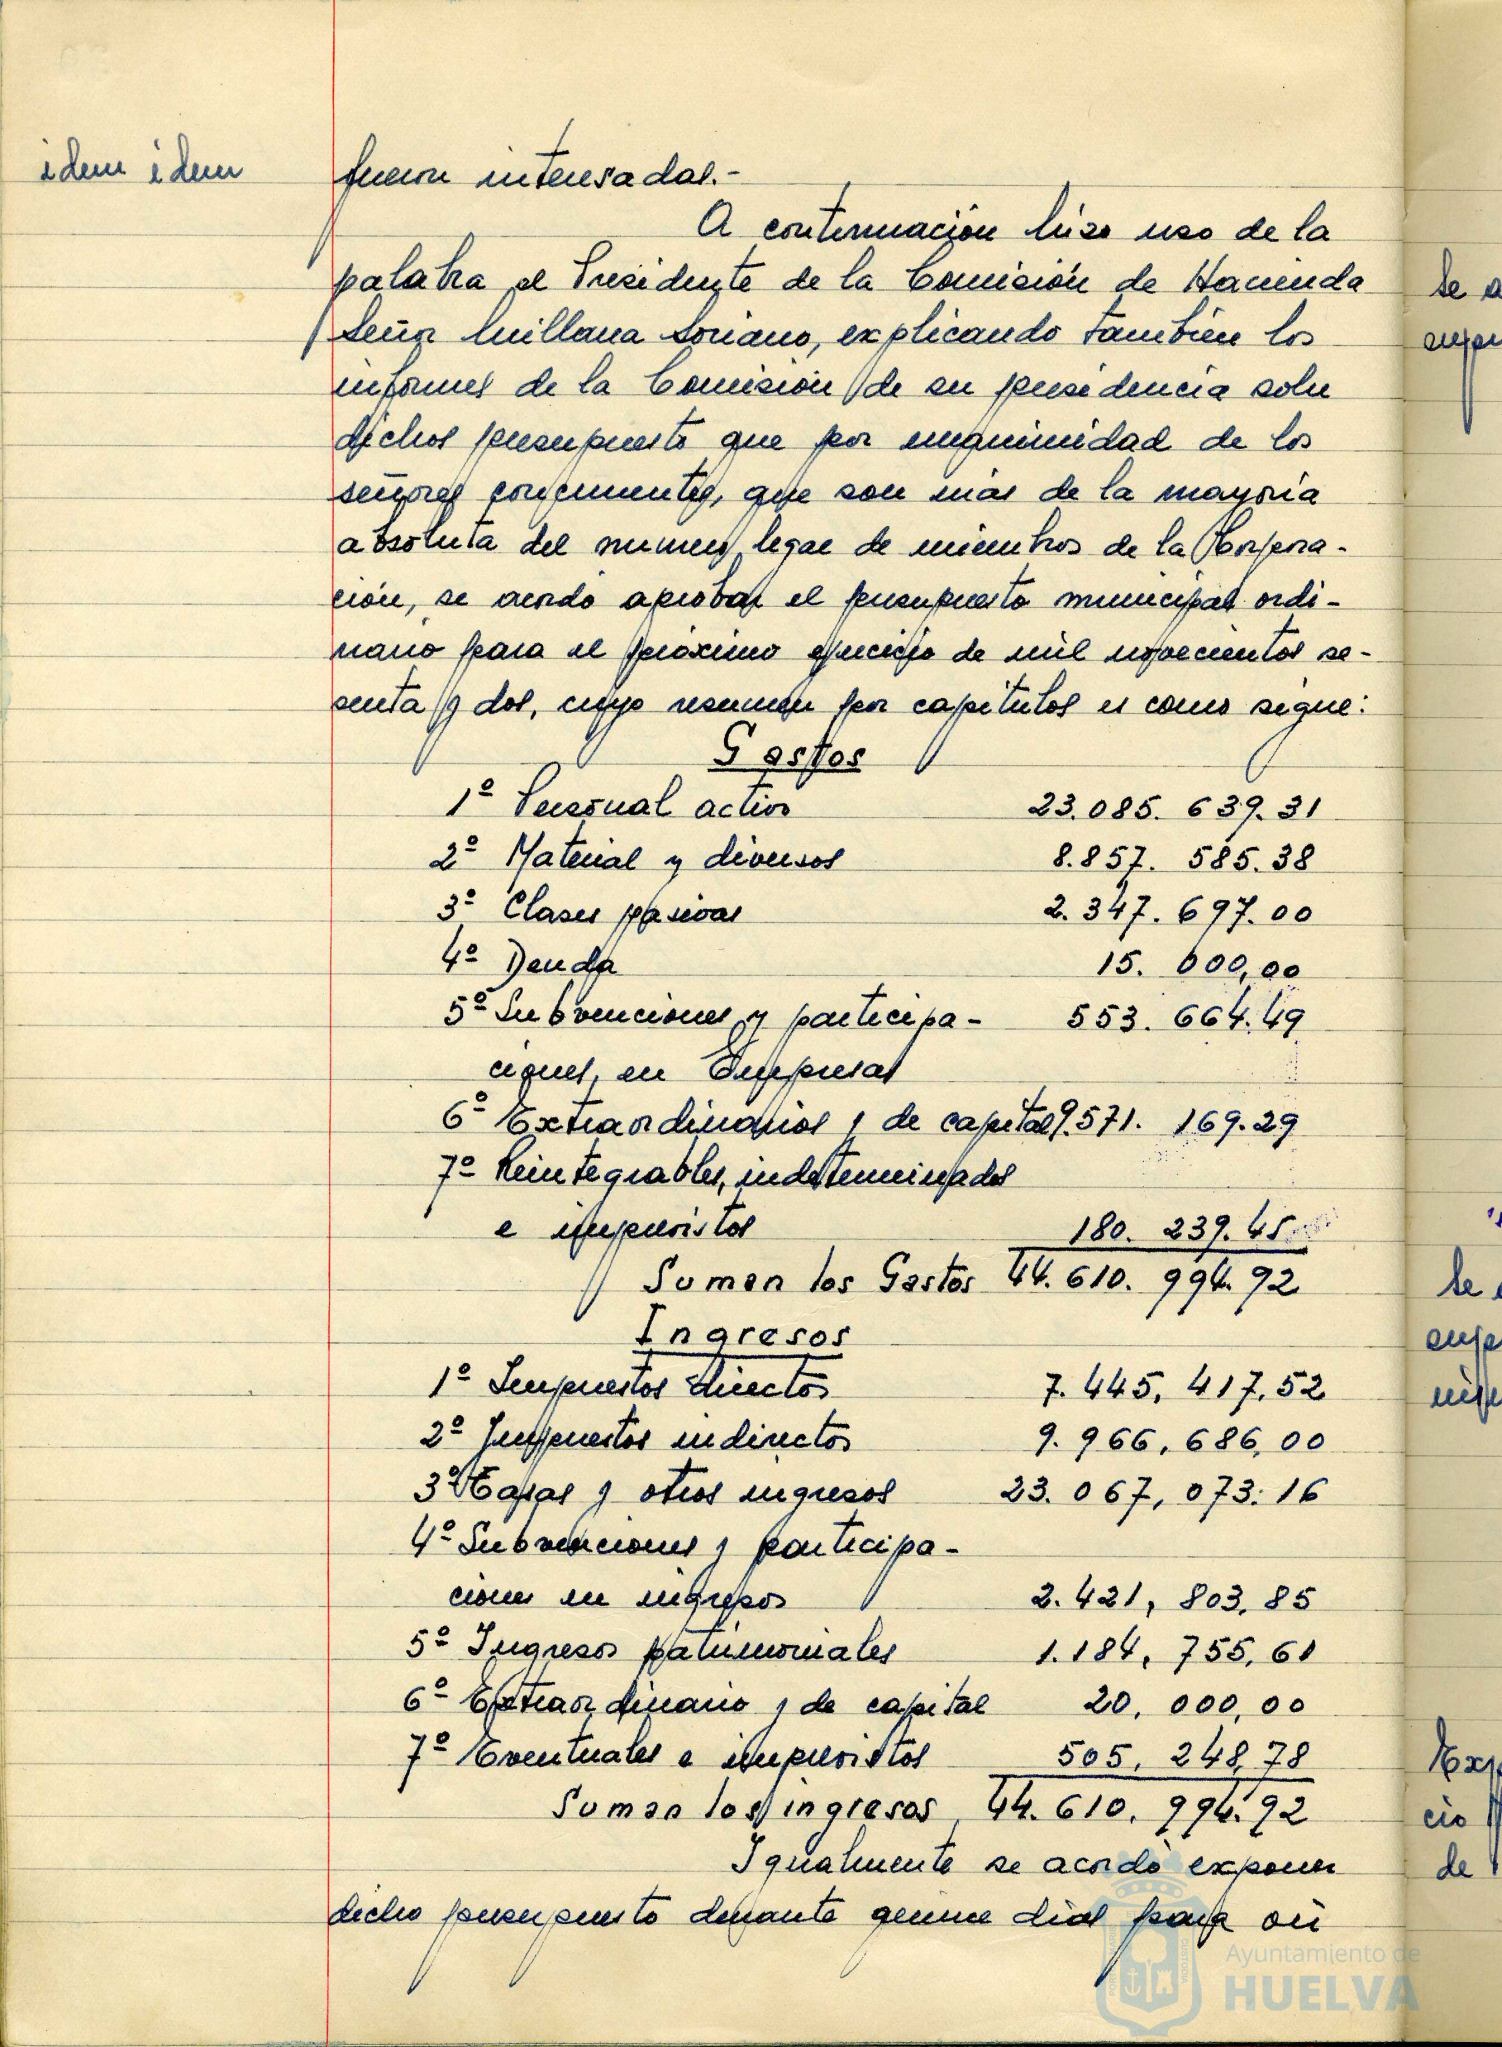 idem idem
fueron interesadas.-
A continuación hizo uso de la
palabra el Presidente de la Comisión de Hacienda
Señor Millana Soriano, explicando también los
informes de la Comisión de su presidencia sobre
dichos presupuesto que por unanimidad de los
señores concurrentes, que son más de la mayoría
absoluta del numero legal de miembros de la Corpora-
ción, se acordó aprobar el presupuesto municipal ordi-
nario para el próximo ejercicio de mil novecientos se-
senta y dos, cuyo resumen por capitulos es como sigue:
Gastos
1º Personal activo 23.085.639.31
2º Material y diversos 8.857.585.38
3º Clases pasivas 2.347.697.00
4º Deuda 15.000,00
5º Subvenciones y participa- 553.664.49
ciones, en Empresas
6º Extraordinarios y de capital 9.571.169.29
7º Reintegrables, indeterminados
e imprevistos 180.239.45
Suman los Gastos 44.610.994.92
Ingresos
1º Impuestos directos 7.445,417,52
2º Impuestos indirectos 9.966,686,00
3º Tasas y otros ingresos 23.067,073:16
4º Subvenciones y participa-
ciones en ingresos 2.421,803,85
5º Ingresos patrimoniales 1.184,755,61
6º Extraordinario y de capital 20,000,00
7º Eventuales e imprevistos 505,248,78
Suman los ingresos 44.610.994.92
Igualmente se acordó exponer
dicho presupuesto durante quince dias para oir
Se a
Se
de
Ayuntamiento de
HUELVA